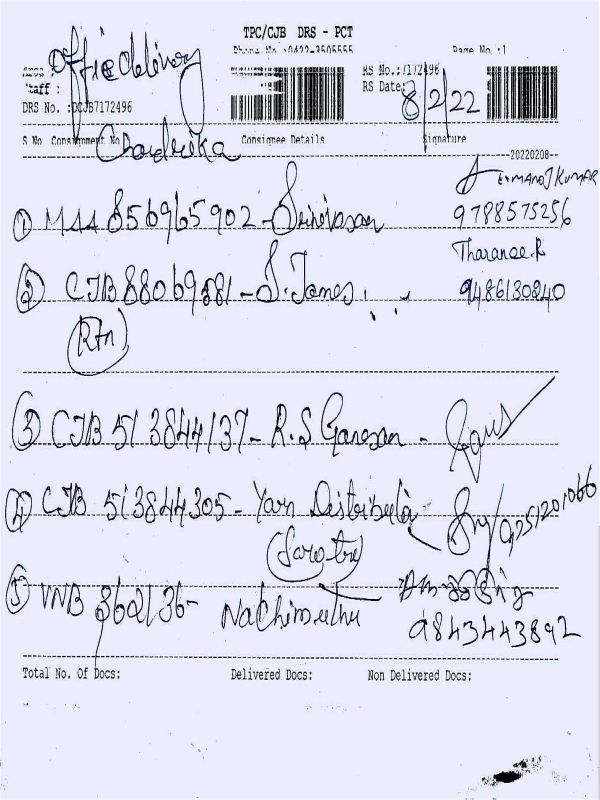 TPC/CJB DRS - PCT
Office delivery
Phone No :0422-3505555 Page No :1
RS No.:7172496
Staff :
RS Date: 8/2/22
DRS No. :DCJB7172496
S No Consignment No Consignee Details Signature
Chandrika
20220208
E.MANOJKUMAR
① MAA 856965902 - Srinivasan 9788575256
Tharanee.R
② CJB 88069881 - S. James 9486130840
(Rtn)
③ CJB 513844137 - R.S Ganesan -
④ CJB 513844305 - Yarn 9751201066
⑤ VNB 362136 - Nachimuthu
9843443892
Total No. Of Docs: Delivered Docs: Non Delivered Docs: